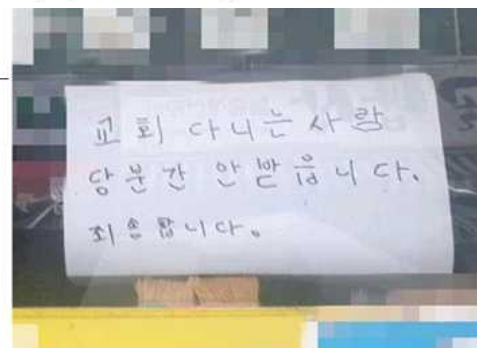 교회 다니는 사람
당분간 안 받습니다.
죄송합니다.